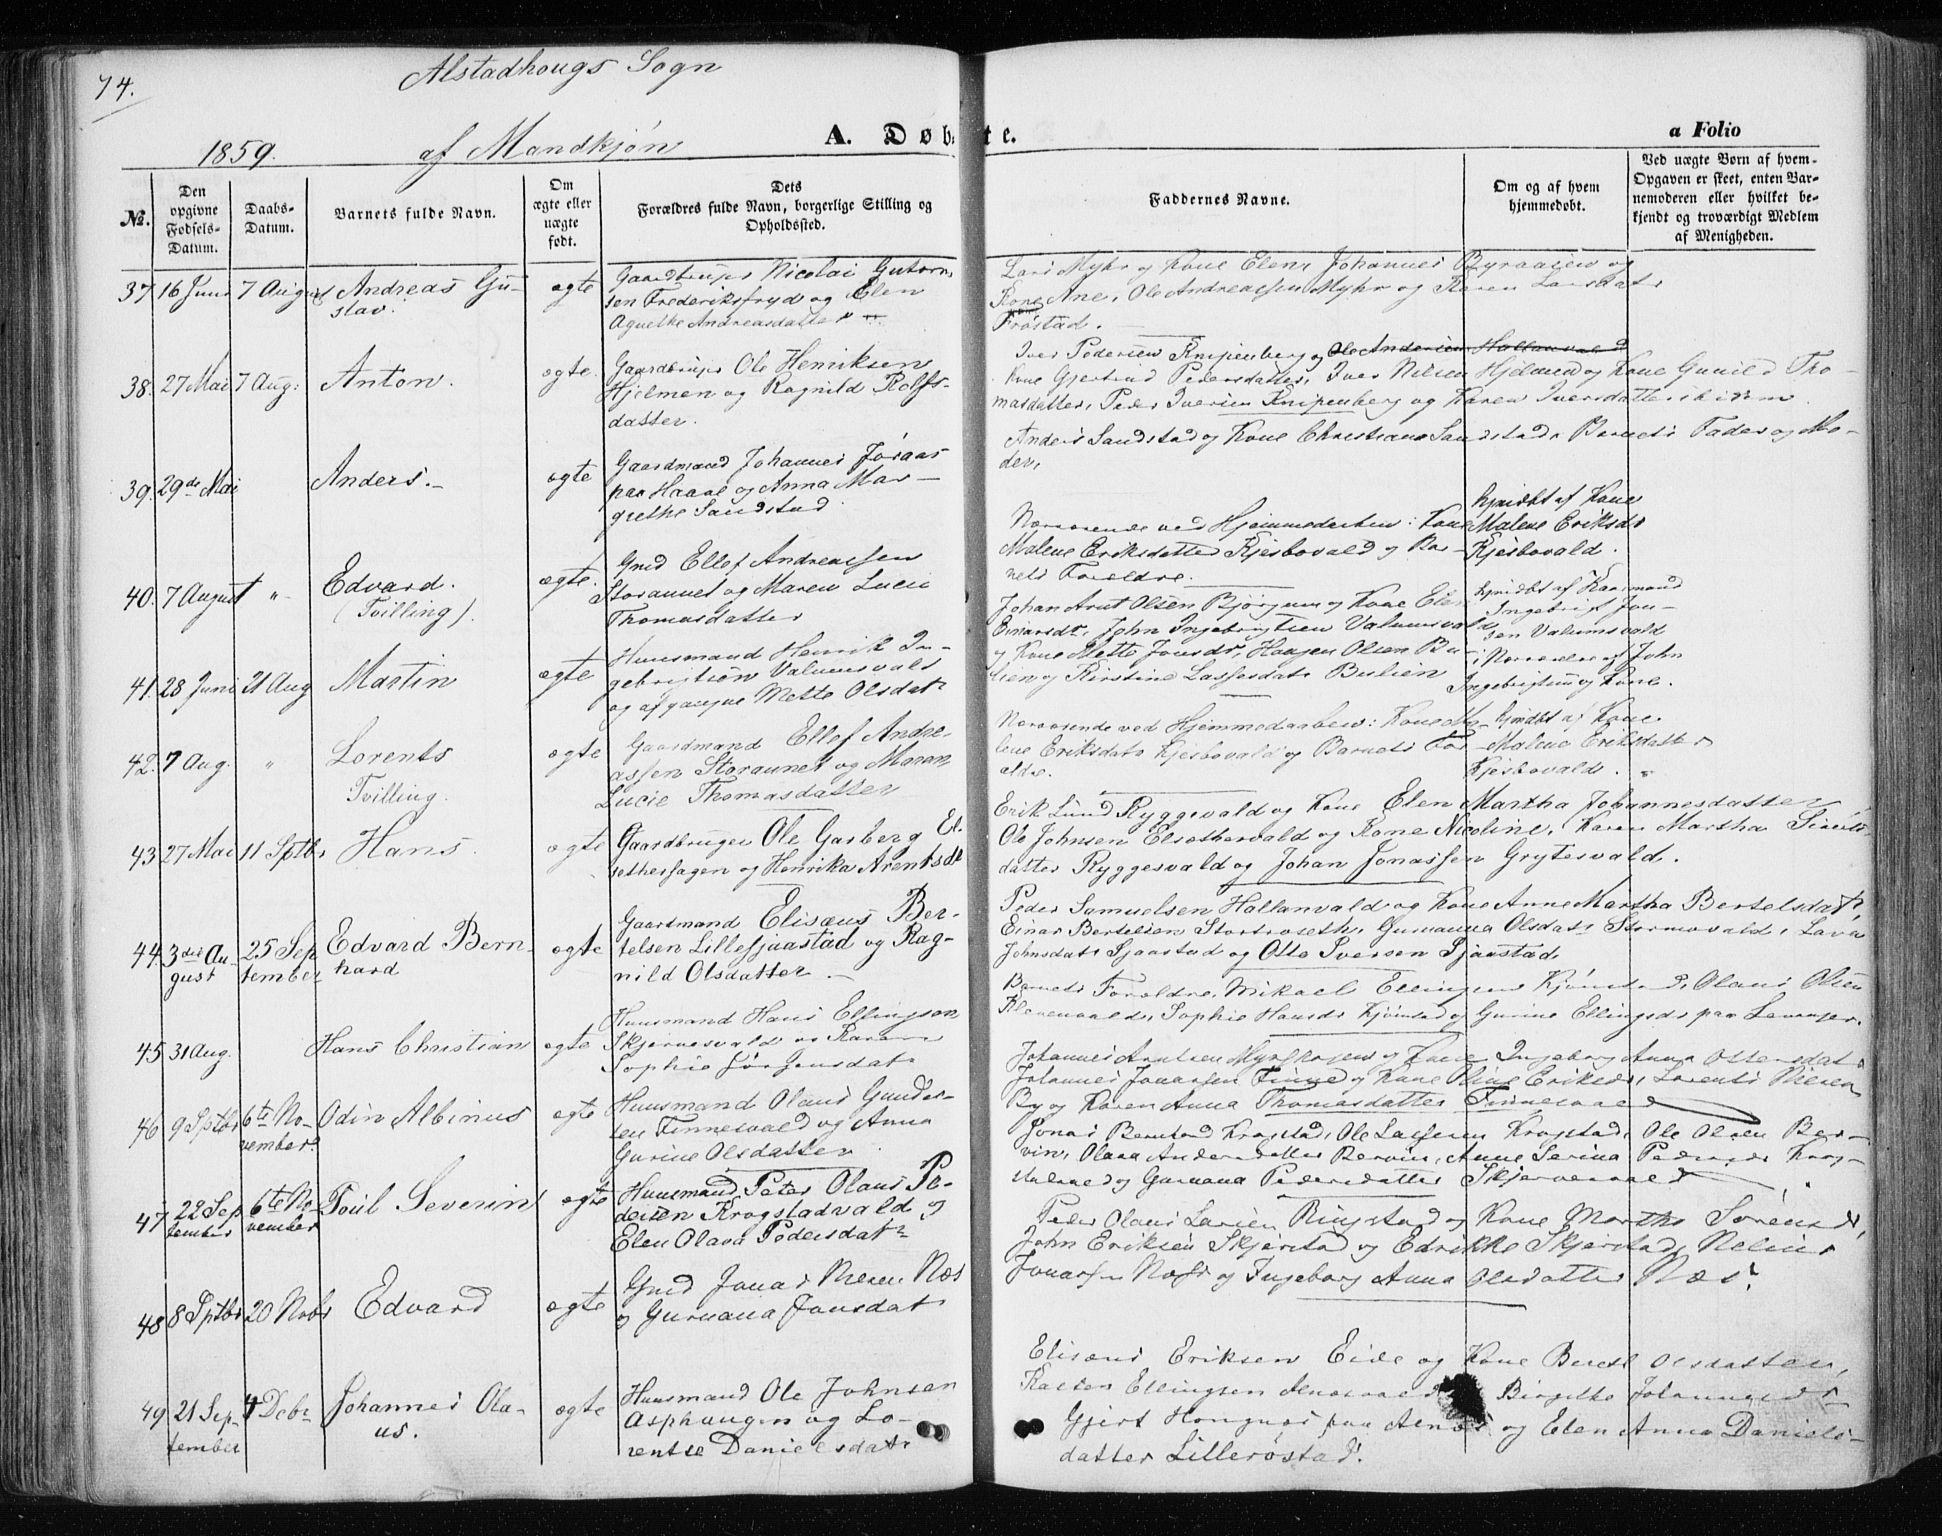 74.
Alstadhougs Sogn
1859.
af Mandkjøn
A. Døbte.
a Folio
No.
Den opgivne Fødsels-Datum.
Daabs-Datum.
Barnets fulde Navn.
Om ægte eller uægte født.
Dets Forældres fulde Navn, borgerlige Stilling og Opholdssted.
Faddernes Navne.
Om og af hvem hjemmedøbt.
Ved uægte Børn af hvem Opgaven er skeet, enten Barnemoderen eller hvilket bekjendt og troværdigt Medlem af Menigheden.
37 16 Juni 7 August Andreas Gu-
stav.
ægte
Gaardbruger Nicolai Gutorm-
sen Frederiksfryd og Elen
Agnethe Andreasdatter
Lars Myhr og Kone Elen, Johannes Byraasen og
Kone Ane, Ole Andreassen Myhr og Karen Larsdatr
Frøstad.
38. 27 Mai 7 Aug: Anton.
ægte.
Gaardbruger Ole Henriksen
Hjelmen og Ragnild Rolfs-
datter.
Iver Pedersen Knipenberg og Ole Andersen Hallanvald
Kone Gjertrud Pedersdatter, Iver Nilsen Hjelmen og Kone Gunild Tho-
masdatter, Peder Iversen Knipenberg og Karen Iversdatter ibidem.
39. 29de Mai Anders.
ægte
Gaardmand Johannes Joraas
paa Haaal og Anna Mar-
grethe Sandstad
Anders Sandstad og Kone Christiana Sandstad, Barnets Fader og Mo-
der,
40. 7 August " Edvard.
(Tvilling).
ægte.
Gmd Ellef Andreassen
Storaunet og Maren Lucie
Thomasdatter
Nærværende ved Hjemmedaaben: Kone
Malene Eriksdatter Kjesbovald og Bar-
nets Forældre.
hjmdbt af Kone
Malene Eriksdr
Kjesbovald.
41. 28 Juni 21 Aug Martin
ægte
Huusmand Henrik In-
gebrigtsøn Valumsvald
og af gangne Mette Olsdatr
Johan Arnt Olsen Bjørgum og Kone Elen
Einarsdr, John Ingebrigtsen Valumsvald
og Kone Mette Jonsdr, Haagen Olsen Bu-
lien og Kirstine Lassesdatr Bulien
hjmdbt af Kaarmand
Ingebrigt Jon-
sen Valumsvald
i Nærværelse af John
Ingebrigtsen og Kone.
42. 7 Aug. " Lorents
Tvilling.
ægte
Gaardmand Ellef Andre-
assen Storaunet og Maren
Lucie Thomasdatter
Nærværende ved Hjemmedaaben: Kone Ma-
lene Eriksdatr Kjesbovald og Barnets For-
ældre.
hjmdbt af Kone
Malene Eriksdatter
Kjesbovald.
43 27 Mai 11 Sptbr Hans.
ægte
Gaardbruger Ole Garberg El-
sethersagen og Henrika Arentsdr
Erik Lund Ryggevald og Kone Elen Martha Johannesdatter
Ole Johnsen Elsethervald og Kone Nicoline, Karen Martha Siverts
datter Ryggesvald og Johan Jonassen Grytesvald.
44. 3die Au-
gust
25 Sep
tember
Edvard Bern-
hard
ægte
Gaardmand Elisæus Ber-
telsen Lillesjaastad og Rag-
nild Olsdatter.
Peder Samuelsen Hallanvald og Kone Anne Martha Bertelsdatr,
Einar Bertelsen Stortroseth, Gurianna Olsdatr Stormovald, Lava
Johnsdatr Sjaastad og Otto Iversen Sjaastad,
45 31 Aug. Hans Christian
ægte
Huusmand Hans Ellingsen
Skjernesvald og Karen
Sophie Jørgensdatr
Barnets Forældre, Mikael Ellingsen Kjønstad, Olaus Olsen
Klevenvald, Sophie Hansdr Kjønstad og Gurine Ellingsdr paa Levanger.
46 9 Sptbr 6te No-
vember
Odin Albinus
ægte
Huusmand Olaus Gunder-
sen Finnesvald og Anna
Gurine Olsdatter
Johannes Arntsen Myhrhogen og Kone Ingeborg Anna Ottersdatr
Johannes Jonassen Finne og Kone Oline Eriksdr, Lorents Nielsen
By og Karen Anna Thomasdatter Finnesvald
47 22 Sep
tember
6te No-
vember
Poul Severin
ægte
Huusmand Peter Olaus Pe-
dersen Krogstadvald og
Elen Olava Pedersdatr
Jonas Berntsen Krogstad, Ole Lassesen Krogstad, Ole Olsen Ber-
vin, Olava Andersdatter Bervin, Anne Serina Pedersdr Krog-
stadvald og Guruana Pedersdatter Skjervevald
48 8 Sptbr 20 Nobr Edvard
ægte
Gmd Jonas Nielsen Næs
og Guruana Jonsdatr
Peder Olaus Larsen Ringstad og Kone Martha Sørensdr,
John Eriksen Skjerstad og Edrikke Skjerstad, Nelius
Jonassen Næss og Ingeborg Anna Olsdatter Næs.
49. 21 Sep-
tember
4 Debr
Johannes Ola-
us.
ægte
Huusmand Ole Johnsen
Asphaugen og Lo-
rentse Danielsdatr
Elisæus Eriksen Eide og Kone Beret Olsdatter,
Ellingsen Birgitha Johannesdr
Gjert Hongnes paa og Elen Anna Daniels-
datter Lillerøstad.